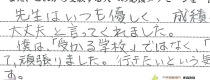 先生はいつも優しく、成績
大丈夫と言ってくれました。
僕は、「受かる学校」ではなく、「
て、頑張りました。行きたいという
す。